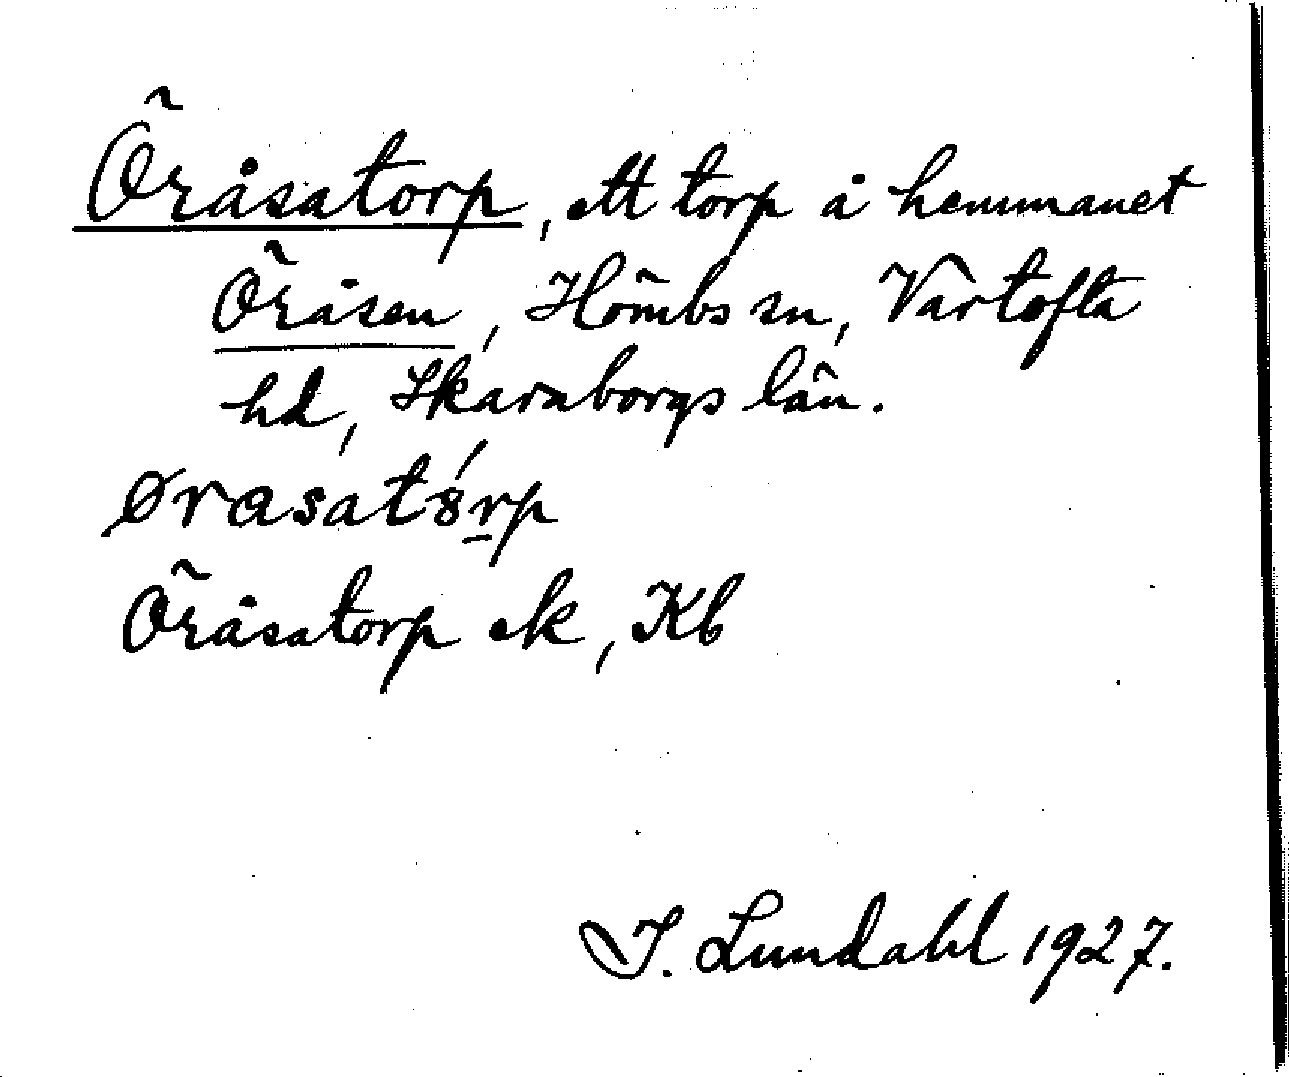 Öråsatorp, ett torp å hemmanet
Öråsen, Hömbs sn, Vartofta
hd, Skaraborgs län.
Öråsatorp ek, Kb
I. Lundahl 1927.